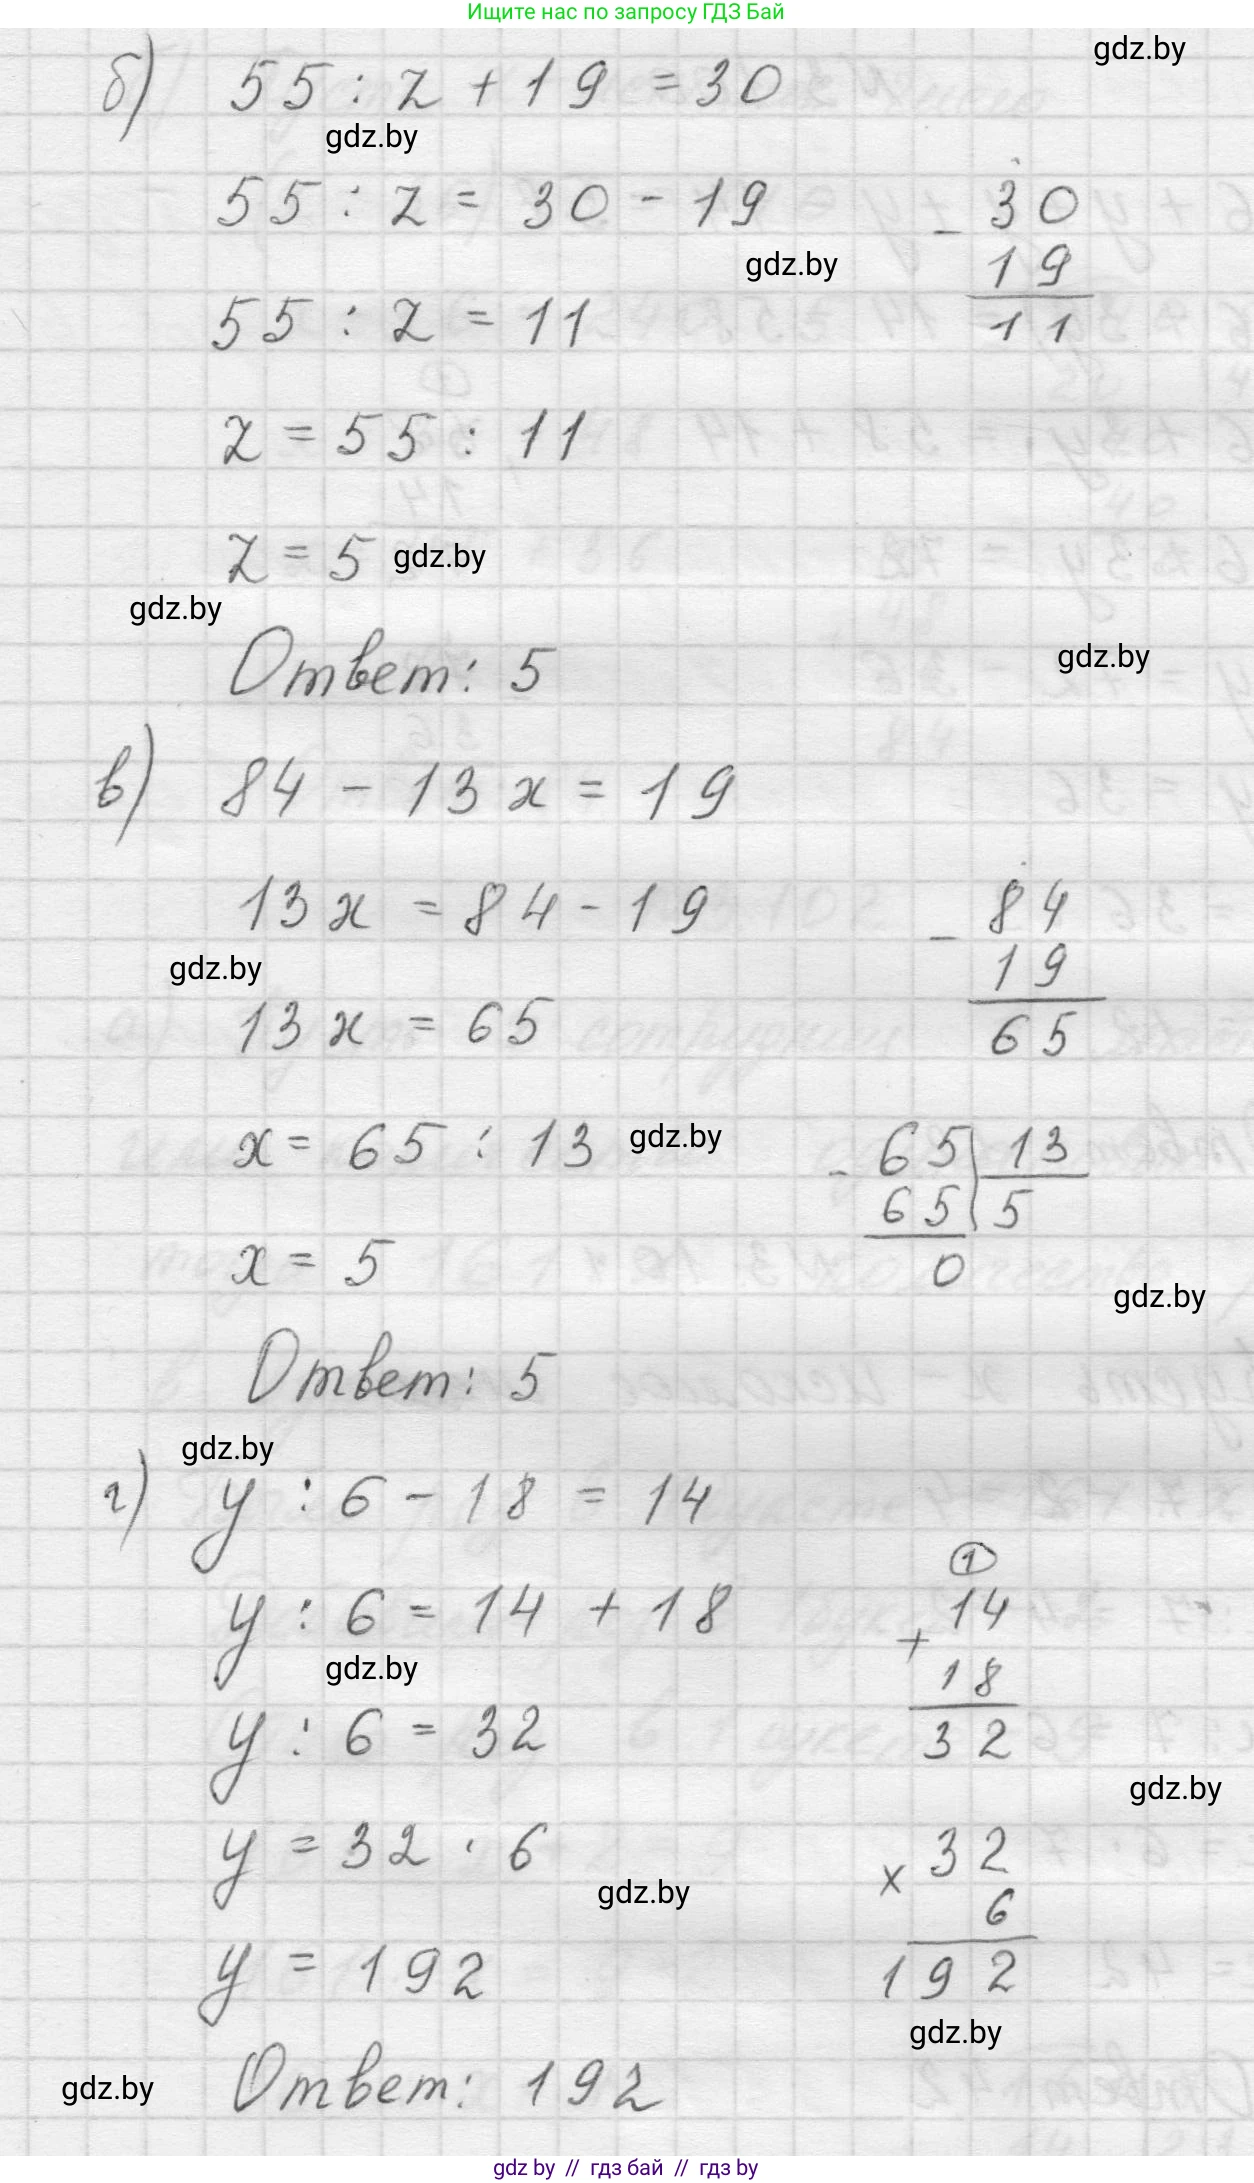 Ищите нас по запросу ГДЗ Бай
gdz.by
б) 55 : z + 19 = 30
gdz.by
55 : z = 30 - 19
gdz.by
55 : z = 11
- 30
19
11
z = 55 : 11
z = 5 gdz.by
gdz.by
Ответ: 5
gdz.by
в) 84 - 13x = 19
13x = 84 - 19
gdz.by
13x = 65
- 84
19
65
x = 65 : 13 gdz.by
x = 5
- 65 | 13
65 | 5
0
gdz.by
Ответ: 5
gdz.by
г) y : 6 - 18 = 14
y : 6 = 14 + 18
gdz.by
y : 6 = 32
1
+ 14
18
32
gdz.by
y = 32 · 6
gdz.by
y = 192
x 32
6
192
gdz.by
gdz.by
Ответ: 192
gdz by // гдз бай // гдз by